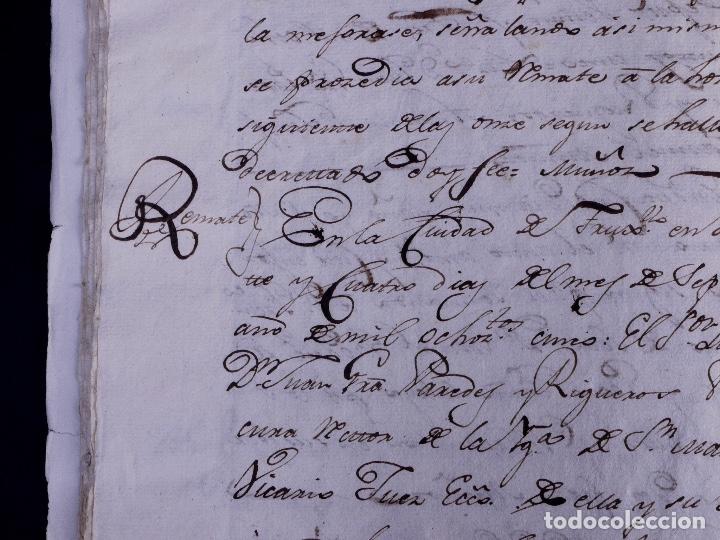 la mejorase, señalando asi mism
se prozedia asu Remate â la hor
siguiente de las onze segun se halla
decrettado doy fee= Muñoz
Remate
En la Ciudad de Trux.º en
tte y Cuatro dias del mes de Sep
año de mil ochoz.tos cinco: El
D.n Juan Fra Paredes y Rigueros
cura Rettor de la Yg.a de S.n Ma
Vicario Juez Ecc.º de ella y su
todocoleccion.net